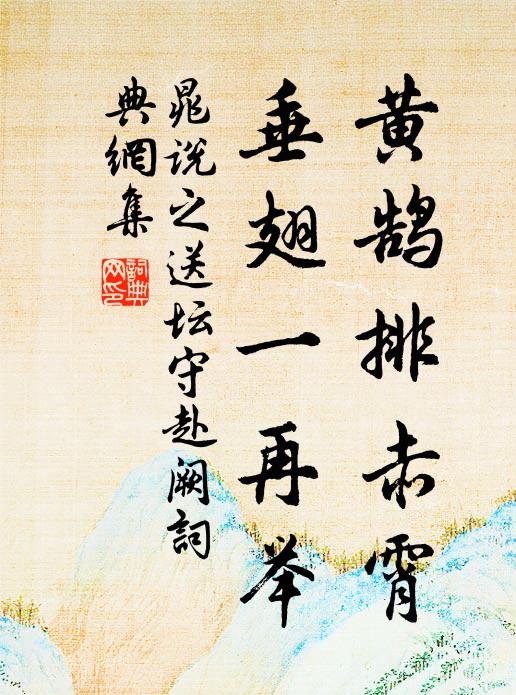 黄鹄排赤霄
垂翅一再举
晁说之送坛守赴阙詞
典網集
詞典
网印